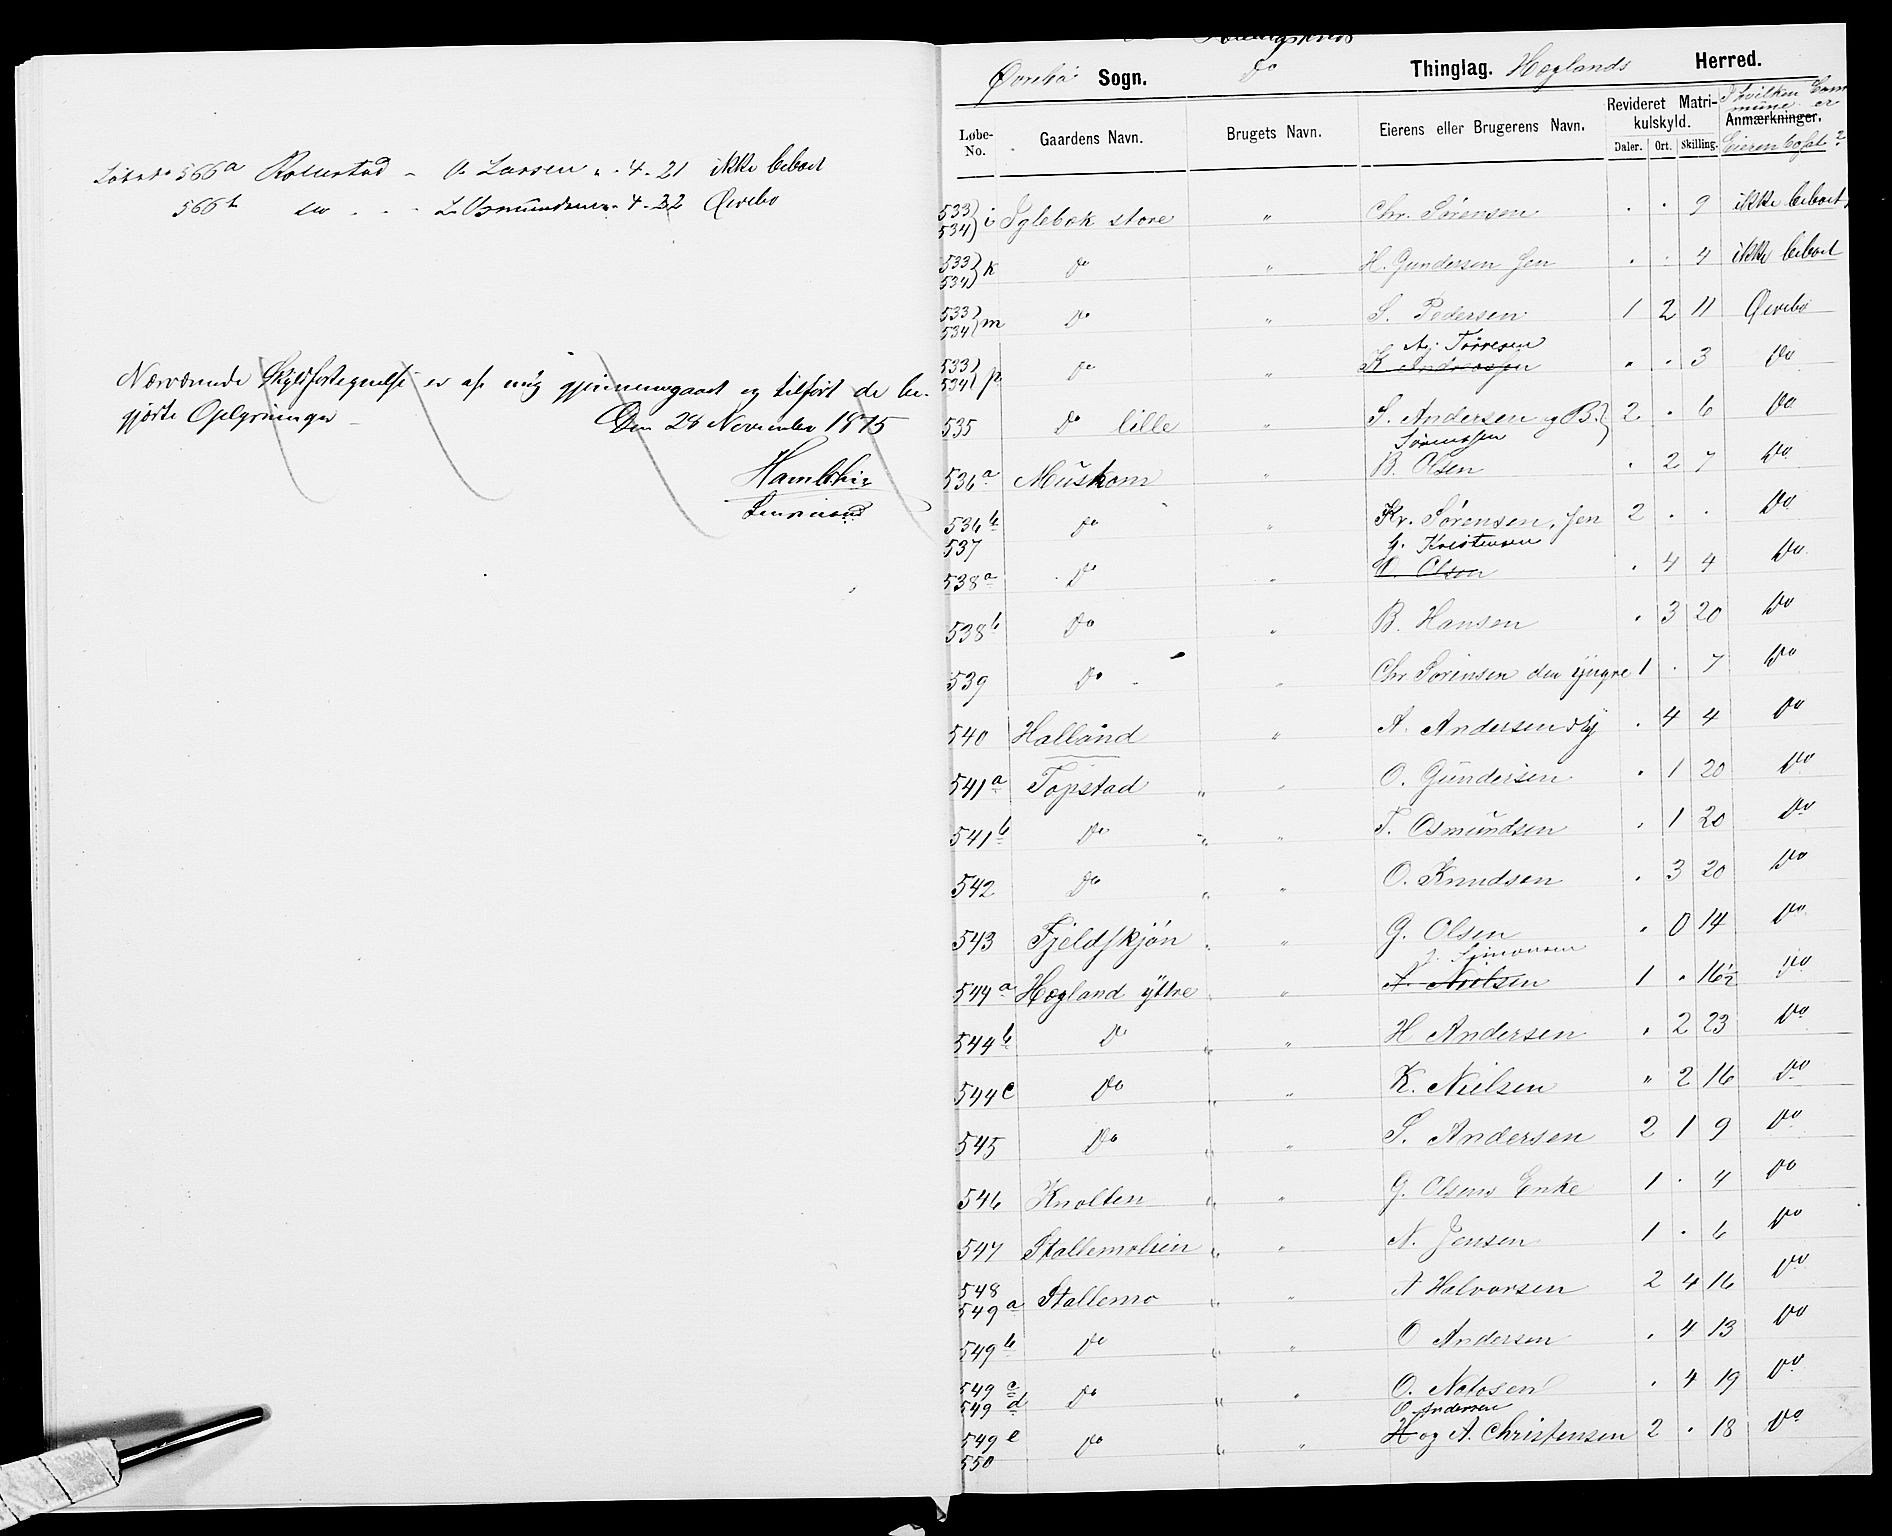 Løbe No 566a Rollestad - O. Larsen " . 4 . 21 ikke beboet
566b do . . . L. Osmundsen " . 4 . 22 Øvrebø
Nærværende Skyldfortegnelse er af mig gjennemgaaet og tilført de be-
gjærte Oplysninger
Den 26 November 1875
Lensmand
Øvrebø Sogn. Do Thinglag. Høglands Herred.
Løbe-No. Gaardens Navn. Brugets Navn. Eierens eller Brugerens Navn. Revideret Matrikulskyld. Daler. Ort. Skilling. Anmærkninger. I hvilken Commune er Eieren bosat?
533 534 i Iglebæk store " Chr. Sørensen . . 9 ikke beboet
533 534 k Do " H. Gundersen Jen . . 4 ikke beboet
533 534 m Do " S. Pedersen 1 2 11 Øvrebø
Aj. Tørresen
533 534 p Do " K. Andreassen . . 3 Do
535 Do lille " S. Andersen og B. Sørensen 2 . 6 Do
536a Muskom " B. Olsen . 2 7 Do
536b 537 Do " Kr. Sørensen, Jen 2 . . Do
G. Kristensen
538a Do " O. Olsen . 4 4 Do
538b Do " B. Hansen . 3 20 Do
539 Do " Chr Sørensen den yngre 1 . 7 Do
540 Halland " A. Andersen . 4 4 Do
541a Topstad " " O. Gundersen . 1 20 Do
541b Do " " T. Osmundsen . 1 20 Do
542 Do " " O. Knudsen . 3 20 Do
543 Fjeldskjøn " " G. Olsen . 0 14 Do
J. Simonsen
544a Høgland ytre " " A. Nielsen 1 . 16½ Do
544b Do " " H Andersen . 2 23 Do
544c Do " " K. Nielsen " 2 16 Do
545 Do " " S. Andersen 2 1 9 Do
546 Knolten " " G. Olsens Enke 1 . 4 Do
547 Stallemolien " " N. Jensen 1 . 6 Do
548 549a Stallemo " " A Halvorsen 2 4 16 Do
549b Do " " O Andersen . 4 13 Do
549c 549d Do " " O. Notosen . 4 19 Do
O Andersen
549e 550 Do " " H og A. Christensen 2 . 18 Do